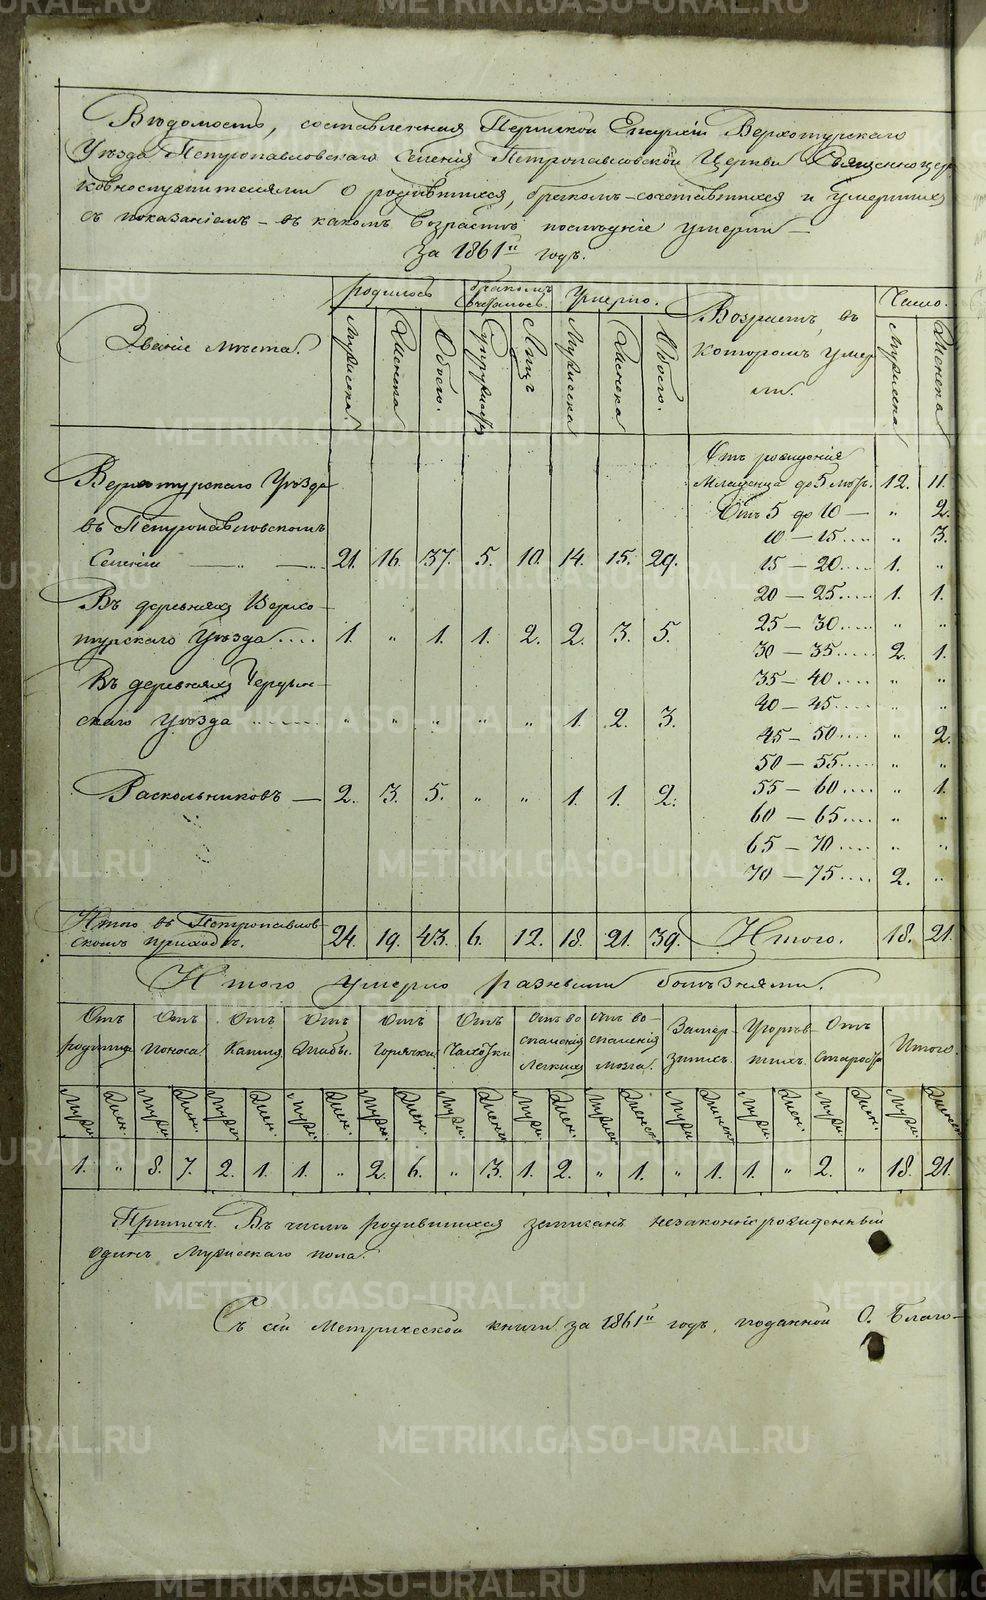 Вѣдомость, составленная Пермской Епархіи Верхотурскаго
Уѣзда Петропавловскаго Селенія Петропавловской Церкви Священноцер
ковнослужителями о родившихся, бракомъ-сочетавшихся и умершихъ
съ показаніемъ - въ какомъ возрастѣ послѣдніе умерли -
За 1861й годъ.
Званіе мѣста. родилось бракомъ сочеталось. Умерло. Возрастъ, въ которомъ умерли. Число.
Мужеска. Женска Обоего. Супружествъ Лицъ Мужеска Женска Обоего. Мужеска Женска
Верхотурскаго Уѣзда
въ Петропавловскомъ
Селеніи 21. 16. 37. 5. 10. 14. 15. 29.
Въ деревняхъ Верхо-
турскаго Уѣзда .... 1. " 1. 1. 2. 2. 3. 5.
Въ деревняхъ Чердын-
скаго Уѣзда ........ " " " " " 1. 2. 3.
Раскольниковъ — 2. 3. 5. " " 1. 1. 2.
Отъ рожденія
Младенца до 5 лѣтъ. 12. 11.
Отъ 5 до 10 — " 2.
10 — 15.... " 3.
15 — 20.... 1. "
20 — 25.... 1. 1.
25 — 30.... " "
30 — 35.... 2. 1.
35 — 40.... " "
40 — 45.... " "
45 — 50.... " 2.
50 — 55.... " "
55 — 60.... " 1.
60 — 65.... " "
65 — 70.... " "
70 — 75.... 2. "
Итого въ Петропавлов-
скомъ приходѣ. 24. 19. 43. 6. 12. 18. 21. 39. Итого. 18. 21.
Итого умерло разными болѣзнями.
Отъ родимца Отъ поноса Отъ Кашля Отъ Жабы. Отъ Горячки Отъ Чахотки Отъ воспаленія Легкихъ Отъ воспаленія мозга. Замерзшихъ. Угорѣвшихъ. Отъ Старости Итого.
Муж. Жен. Муж. Жен. Муж. Жен. Муж. Жен. Муж. Жен. Муж. Женска Муж. Жен. Мужес. Женска Муж. Женск. Муж. Жен. Муж. Жен. Муж. Женска
1. " 8. 7. 2. 1. 1. " 2. 6. " 3. 1. 2. " 1. " 1. 1. " 2. " 18. 21.
Примѣч. Въ числѣ родившихся записанъ незаконнорожденный
одинъ Мужескаго пола.
Съ сей Метрической книги за 1861й годъ, поданной О. Благо-
METRIKI.GASO-URAL.RU